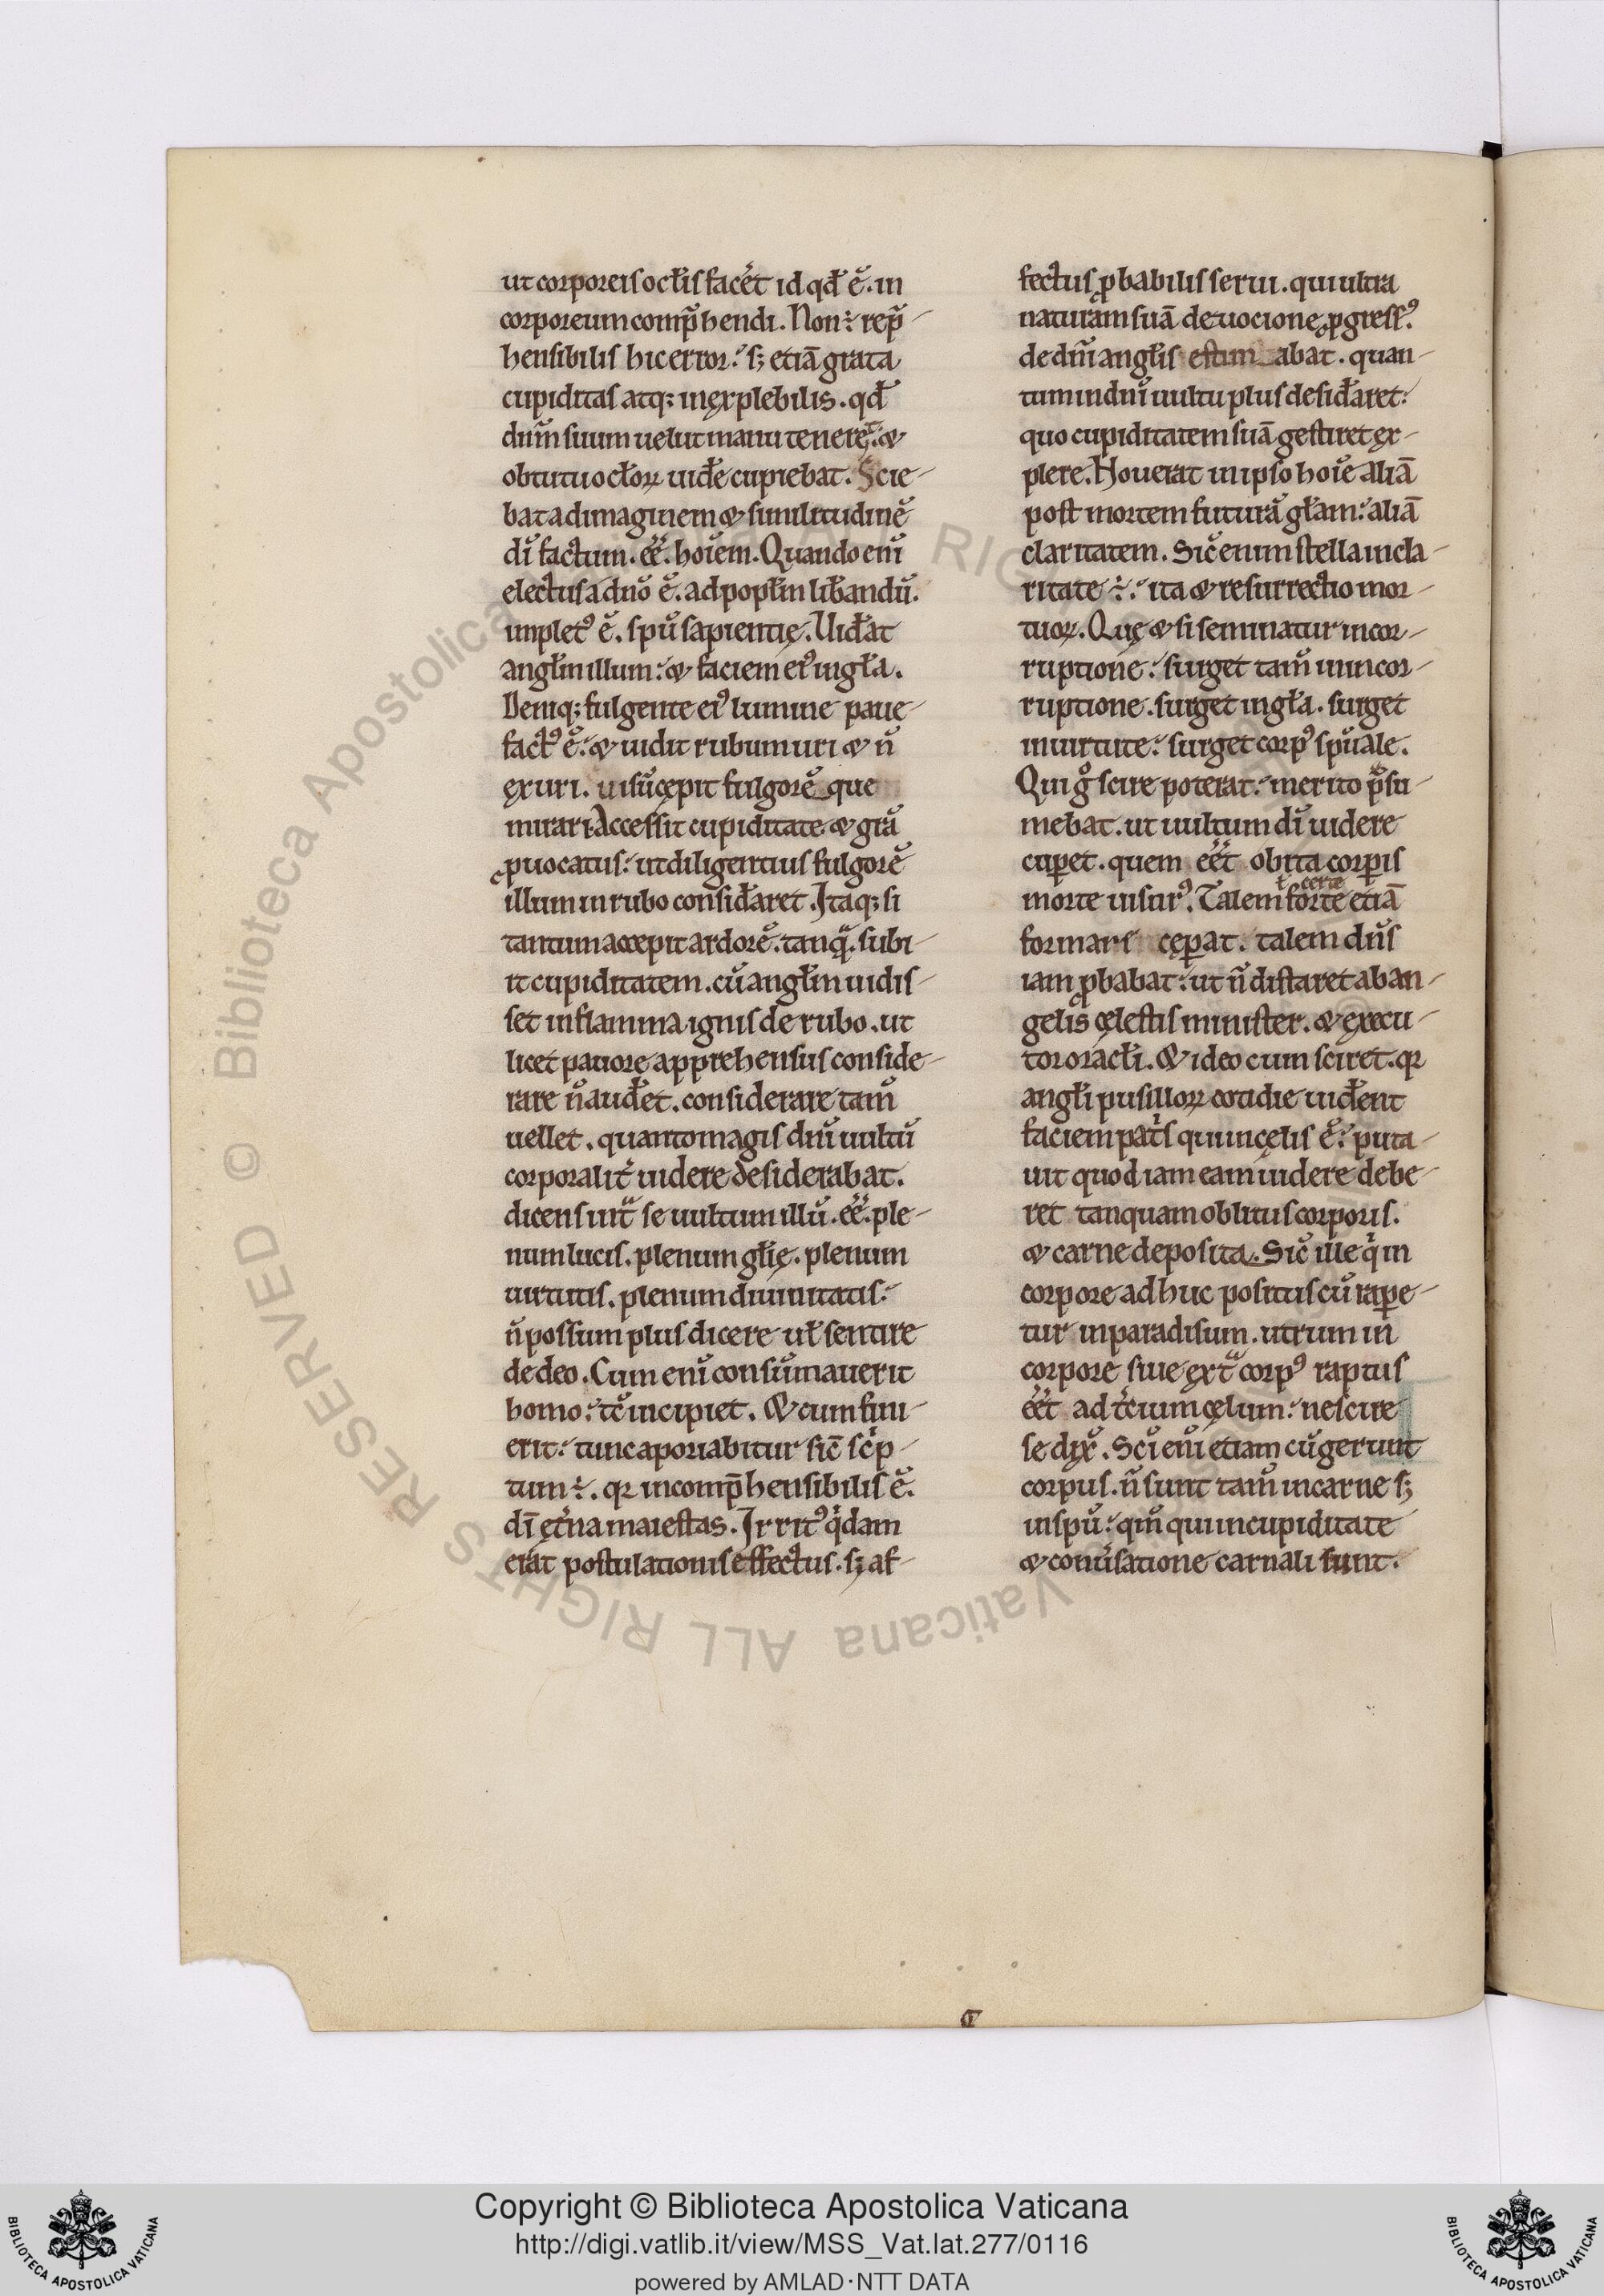 ut corporeis oct̄is facēt id qđ ē. in
corporeum comp̄hendi. Non ÷ rep̄
hensibilis hic error. s; etiā grata
cupiditas atq; inęxplebilis. qđ
dn̄m suum uelut manu teneret. &
obtutu ocłoꝝ uiđe cupiebat. Scie-
bat ad imaginem & similitudinē
dī factum. eē. hoīem. Quando enī
electus a dn̄o ē. ad popłm lib̄andū.
implet⁹ ē. sp̄u sapientię. Uiđat
angłm illum: & faciem ei⁹ in gła.
Deniq; fulgente ei⁹ lumine paue-
fact⁹ ē. & uidit rubum uri & n̄
ęxuri. uisu cępit fulgorē que
mirari. Accessit cupiditate & grā
ꝓuocatus: ut diligentius fulgorē
illum in rubo consiđaret. Itaq; si
tantum accepit ardorē. tanq̄. subi-
it cupiditatem. cū angłm uidis-
set in flamma ignis de rubo. ut
licet pauore apprehensus conside-
rare n̄ auđet. considerare tam̄
uellet. quanto magis dn̄i uultū
corporalit̄ uidere desiderabat.
dicens int̄ se uultum illū. eē. ple-
num lucis. plenum głię. plenum
uirtutis. plenum diuinitatis.
n̄ possum plus dicere uł sentire
de deo. Cum enī consūmauerit
homo: tc̄ incipiet. & cum fini-
erit: tunc aporiabitur sic̄ sc̄p-
tum ÷. qr incomp̄hensibilis ē.
dī ęt̄na maiestas. Irrit⁹ q̇dam
erat postulationis effectus. s; af-
fectus ꝓbabilis serui. qui ultra
naturam suā deuocione ꝓgress⁹.
de dn̄i angłis estim abat. quan-
tum in dn̄i uultu plus desiđaret:
quo cupiditatem suā gestiret ęx-
plere. Nouerat in ipso hoīe aliā
post mortem futurā głam: aliā
claritatem. Sic̄ enim stella in cla-
ritate ÷. ita & resurrectio mor-
tuoꝝ. Quę & si seminatur in cor-
ruptione: surget tam̄ in incor-
ruptione. surget in gła. surget
in uirtute: surget corp⁹ sp̄uale.
Qui g̊ scire poterat: merito p̄su-
mebat. ut uultum dī uidere
cuꝑet. quem eēt obita corꝑis
morte uisur⁹. Talem forte etiā
ł certe
formari cęꝑat. talem dn̄s
iam ꝓbabat: ut n̄ distaret ab an-
gelis cęlestis minister. & ęxecu-
tor oracłi. & ideo cum sciret. qr
angłi pusilloꝝ cotidie uiđent
faciem pat̄s qui in cęlis ē: puta-
uit quod iam eam uidere debe-
ret tanquam oblitus corporis.
& carne deposita. Sic̄ ille q̇ in
corpore ad huc positus cū raꝑe-
tur in paradisum. utrum in
corpore siue ęxt̄ corp⁹ raptus
eēt ad t̄cium cęlum: nescire
se dix̄. Sc̄i enī etiam cū gerunt
corpus. n̄ sunt tam̄ in carne s;
in sp̄u: qm̄ qui in cupiditate
& conūsatione carnali sunt.
Copyright © Biblioteca Apostolica Vaticana
http://digi.vatlib.it/view/MSS_Vat.lat.277/0116
powered by AMLAD·NTT DATA
BIBLIOTECA APOSTOLICA VATICANA
BIBLIOTECA APOSTOLICA VATICANA
© Biblioteca Apostolica Vaticana ALL RIGHTS RESERVED